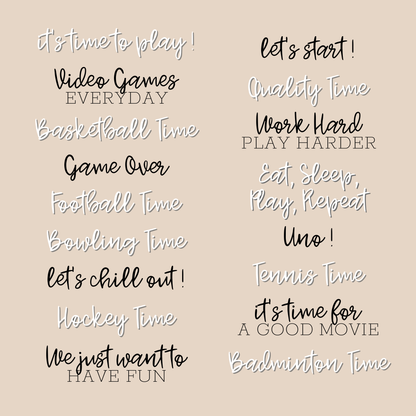 it's time to play!
Video Games
EVERYDAY
Basketball Time
Game Over
Football Time
Bowling Time
let's chill out!
Hockey Time
We just want to
HAVE FUN
let's start!
Quality Time
Work Hard
PLAY HARDER
Eat, Sleep,
Play, Repeat
Uno!
Tennis Time
it's time for
A GOOD MOVIE
Badminton Time